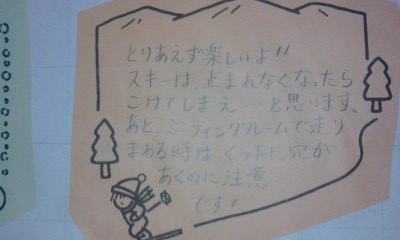 とりあえず楽しいよ!!
スキーは、止まれなくなったら
こけてしまえ…と思います。
あと、ミーティングルームで走り
まわる時は、くつ下に穴が
あくのに注意
です!